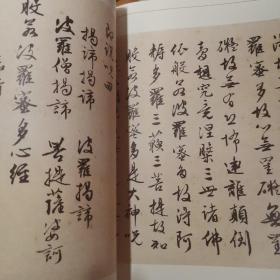 羅蜜多故心無罣礙無罣
礙故無有恐怖遠離顛倒
夢想究竟涅槃三世諸佛
依般若波羅蜜多故得阿
耨多羅三藐三菩提故知
般若波羅蜜多是大神咒
即說咒曰
揭諦揭諦 波羅揭諦
波羅僧揭諦 菩提薩婆訶
般若波羅蜜多心經